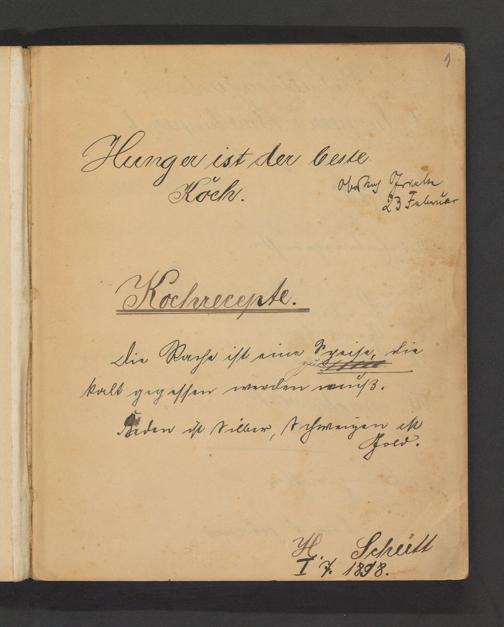 1
Hunger ist der beste
Koch.
23 Februar
Kochrecepte.
Die Rache ist eine Speise, die
kalt gegessen werden muß.
Reden ist Silber, Schweigen ist
Gold.
H. Schütt
I. 7. 1898.